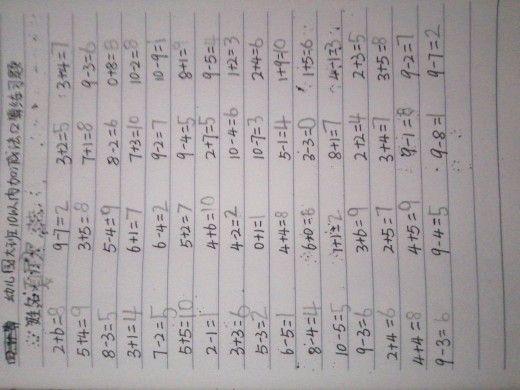 幼儿园大班10以内加减法口算练习题
姓名
2+6=8 9-7=2 3+2=5 3+4=7
5+4=9 3+5=8 7+1=8 9-3=6
8-3=5 5-4=9 8-2=6 0+8=8
3+1=4 6+1=7 7+3=10 10-2=8
7-2=5 6-4=2 9-2=7 10-9=1
5+5=10 5+2=7 9-4=5 8+1=9
2-1=1 4+6=10 2+7=5 9-5=4
3+3=6 4-2=2 10-4=6 1+2=3
5-3=2 0+1=1 10-7=3 2+4=6
6-5=1 4+4=8 5-1=4 1+9=10
8-4=4 6+0=6 3-3=0 1+5=6
10-5=5 1+1=2 8+1=7 4-1=3
9-3=6 3+6=9 2+2=4 2+3=5
2+4=6 2+5=7 3+4=7 3+5=8
4+4=8 4+5=9 9-1=8 9-2=7
9-3=6 9-4=5 9-8=1 9-7=2